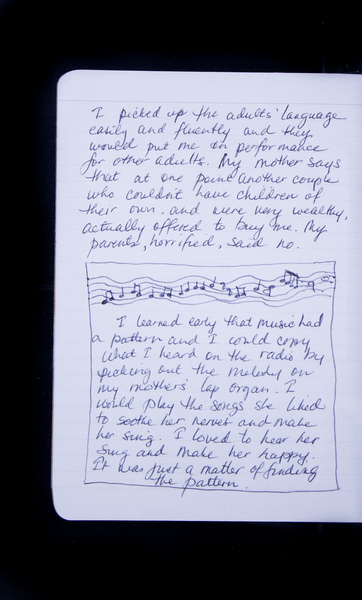 I picked up the adults' language
easily and fluently and they
would put me on performance
for other adults. My mother says
that at one point another couple
who couldn't have children of
their own. and were very wealthy,
actually offered to buy me. My
parents, horrified, said no.
I learned early that music had
a pattern and I could copy
what I heard on the radio by
picking out the melody on
my mothers' lap organ. I
would play the songs she liked
to soothe her nerves and make
her sing. I loved to hear her
sing and make her happy.
It was just a matter of finding
the pattern.